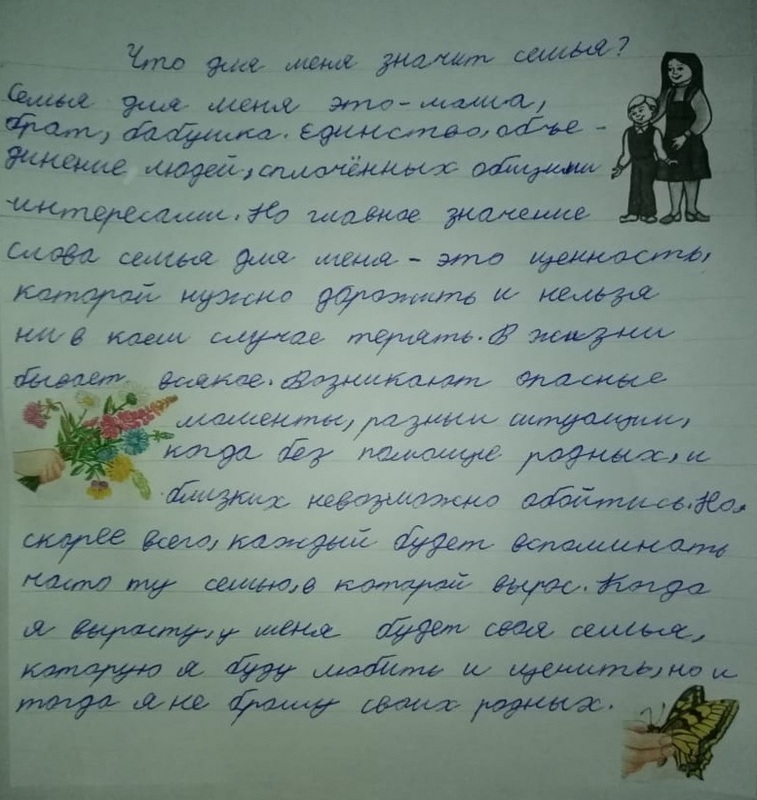 Что для меня значит семья?
Семья для меня это-мама,
брат, бабушка. Единство, объе-
динение людей, сплочённых общими
интересами. Но главное значение
слова семья для меня - это ценность,
которой нужно дорожить и нельзя
ни в коем случае терять. В жизни
бывает всякое. Возникают опасные
моменты, разные ситуации,
когда без помощи родных, и
близких невозможно обойтись. Но,
скорее всего, каждый будет вспоминать
часто ту семью, в которой вырос. Когда
я вырасту, у меня будет своя семья,
которую я буду любить и ценить, но и
тогда я не брошу своих родных.